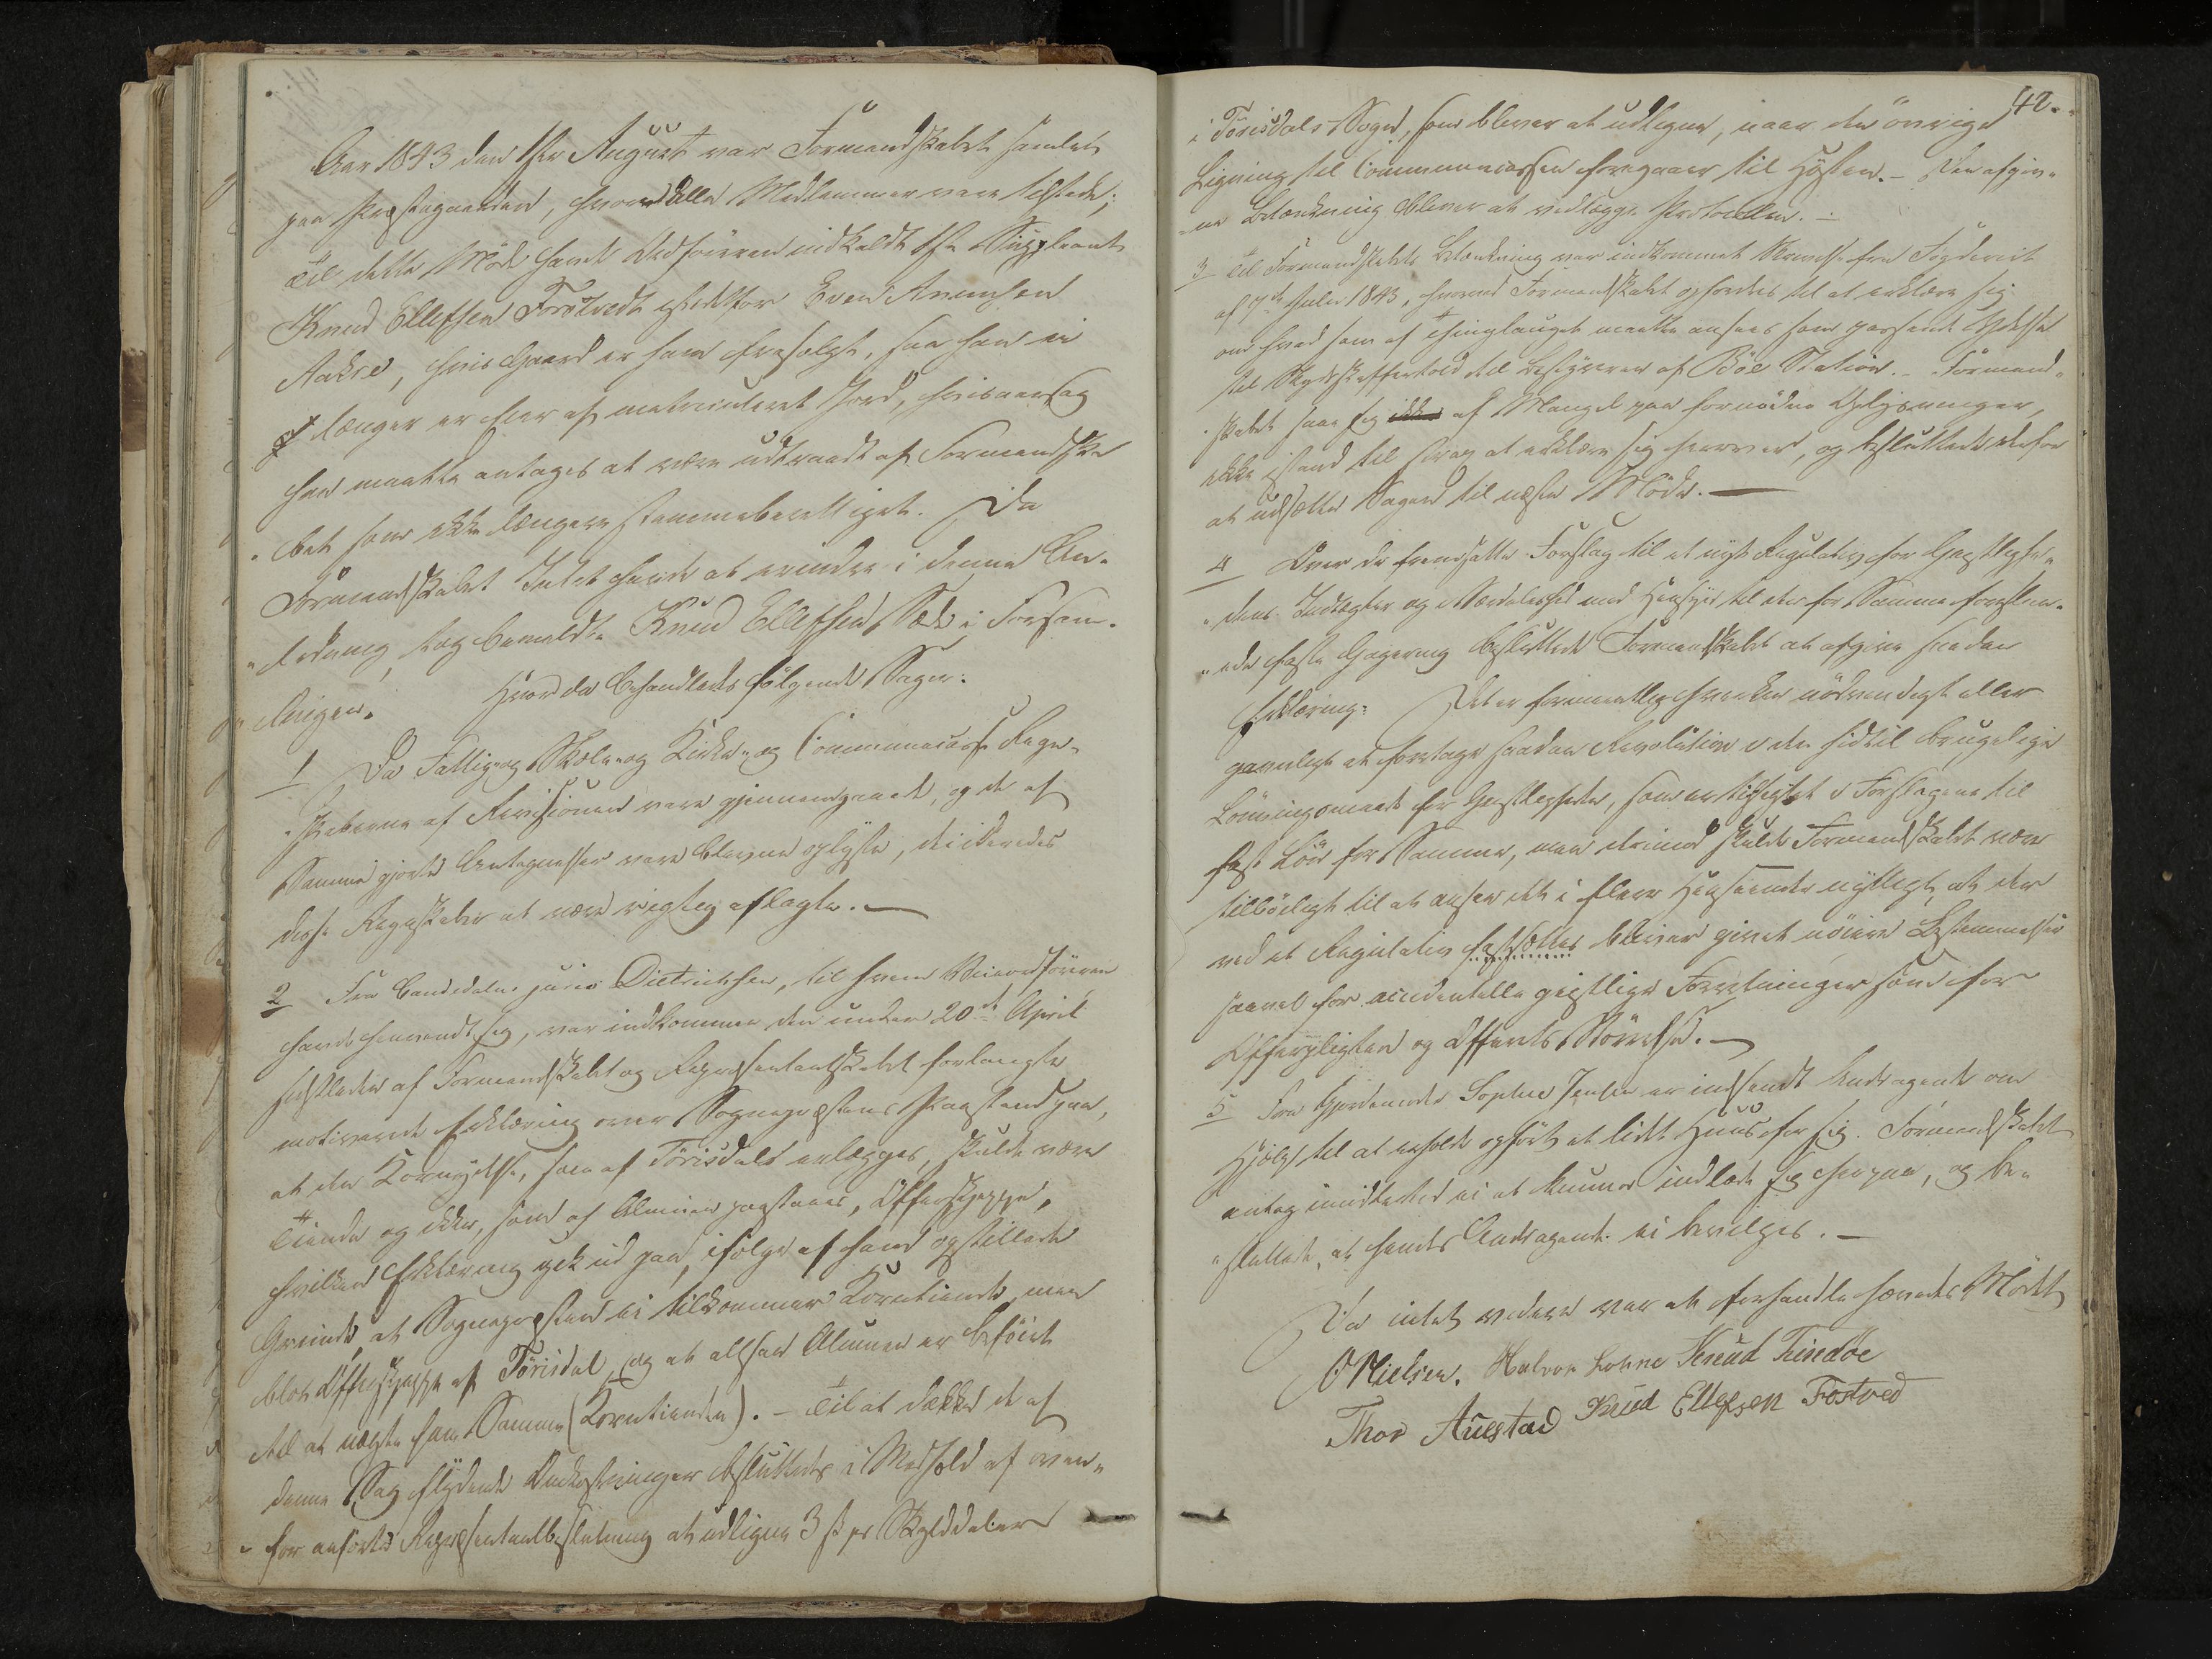 Aar 1843 den 1ste August var Formandskabet samlet
paa Præstegaarden, hvor alle Medlemmer vare tilstede;
til dette Møde havde Ordføreren indkaldt 1ste Suppleant
Knud Ellefsen Forstvedt istedetfor Even Avensen
Aakre, hvis Gaard er ham frasolgt, saa han ei
længer er Eier af matriculeret Jord, hvisaarsag
han maatte antages at være udtraadt af Formandska-
bet som ikke længere stemmeberettiget. Da
Formandskabet Intet havde at erindre i denne An-
ledning, tog bemeldte Knud Ellefsen Sæde i Forsam-
lingen.
Hvorda behandledes følgende Sager:
1 Da Fattig- og Skole- og Kirke- og Communecasse Regn-
skaberne af Revisionen vare gjennemgaaede, og de af
Samme gjorte Antegnelser vare blevne oplyste, decideredes
disse Regnskaber at være rigtig aflagte. —
2 Fra Candidatus juris Dietrichsen, til hvem Ordføreren
havde henvendt sig, var indkommen den under 20de April
sidstleden af Formandskabet og Repræsentantskabet forlangte
motiverede Erklæring over Sognepræstens Paastand paa,
at den Kornydelse, som af Törisdal erlægges, skulde være
Tiende og ikke, som af Almuen paastaaes, Offerskjeppe,
hvilken Erklæring gik ud paa, ifølge af ham opstillede
Grunde, at Sognepræsten ei tilkommer Korntiende, men
blot Offerskjeppe af Törisdal, og at altsaa Almuen er beføiet
til at nægte ham Samme (Korntienden). – Til at dække de af
denne Sag flydende Omkostninger besluttedes i Medhold af oven-
for anførte Repræsentantbeslutning at udligne 3 ß pr Skylddaler
42.
i Törisdals Sogn, som bliver at udligne, naar den øvrige
Ligning til Communecassen foregaaer til Høsten. – Den afgiv-
ne Betænkning bliver at vedlægge Protocollen. –
3 Til Formandskabets Betænkning var indkommet Skrivelse fra Fogderiet
af 7de Juli 1843, hvorved Formandskabet opfordres til at erklære sig
om hvad som af Thinglauget maatte ansees som passende Ydelse
til Skydsskafferhold til Bestyreren af Böe Station. – Formand-
skabet saae sig ikke af Mangel paa fornødne Oplysninger,
ikke istand til strax at erklære sig herover, og besluttede derfor
at udsætte Sagen til næste Møde. —
4 Over de fremsatte Forslag til et nyt Regulativ for Geistlighe-
dens Indtægter og med Hensyn til den for Samme foreslaa-
ede faste Gagering besluttede Formandskabet at afgive saadan
Erklæring: Det er formeentlig hverken nødvendigt eller
gavnligt at foretage saadan Revolution i den hidtil brugelige
Lønningsmaade for Geistligheden, som er tilsigtet i Forslagene til
fast Løn for Samme, men derimod skulde Formandskabet være
tilbøieligt til at ansee det i flere Henseender nyttigt, at der
ved et Regulativ fastsættes bliver givet nøiere Bestemmelser
saavel for accidentelle geistlige Forretninger som for
Offerpligten og Offerets Størrelse. —
5 Fra Sophie Jensen er indsendt Andragende om
Hjælp til at erholde opført et lidet Huus for sig. Formandskabet
antog imidlertid ei at kunne indlade sig herpaa, og be-
sluttede, at hendes Andragende ei bevilges. —
Da intet videre var at forhandle hævedes Mødet
O Nielsen. Halvor Lohne Knud Tuedöe
Thor Aüestad Knüd Ellefsen Fostved